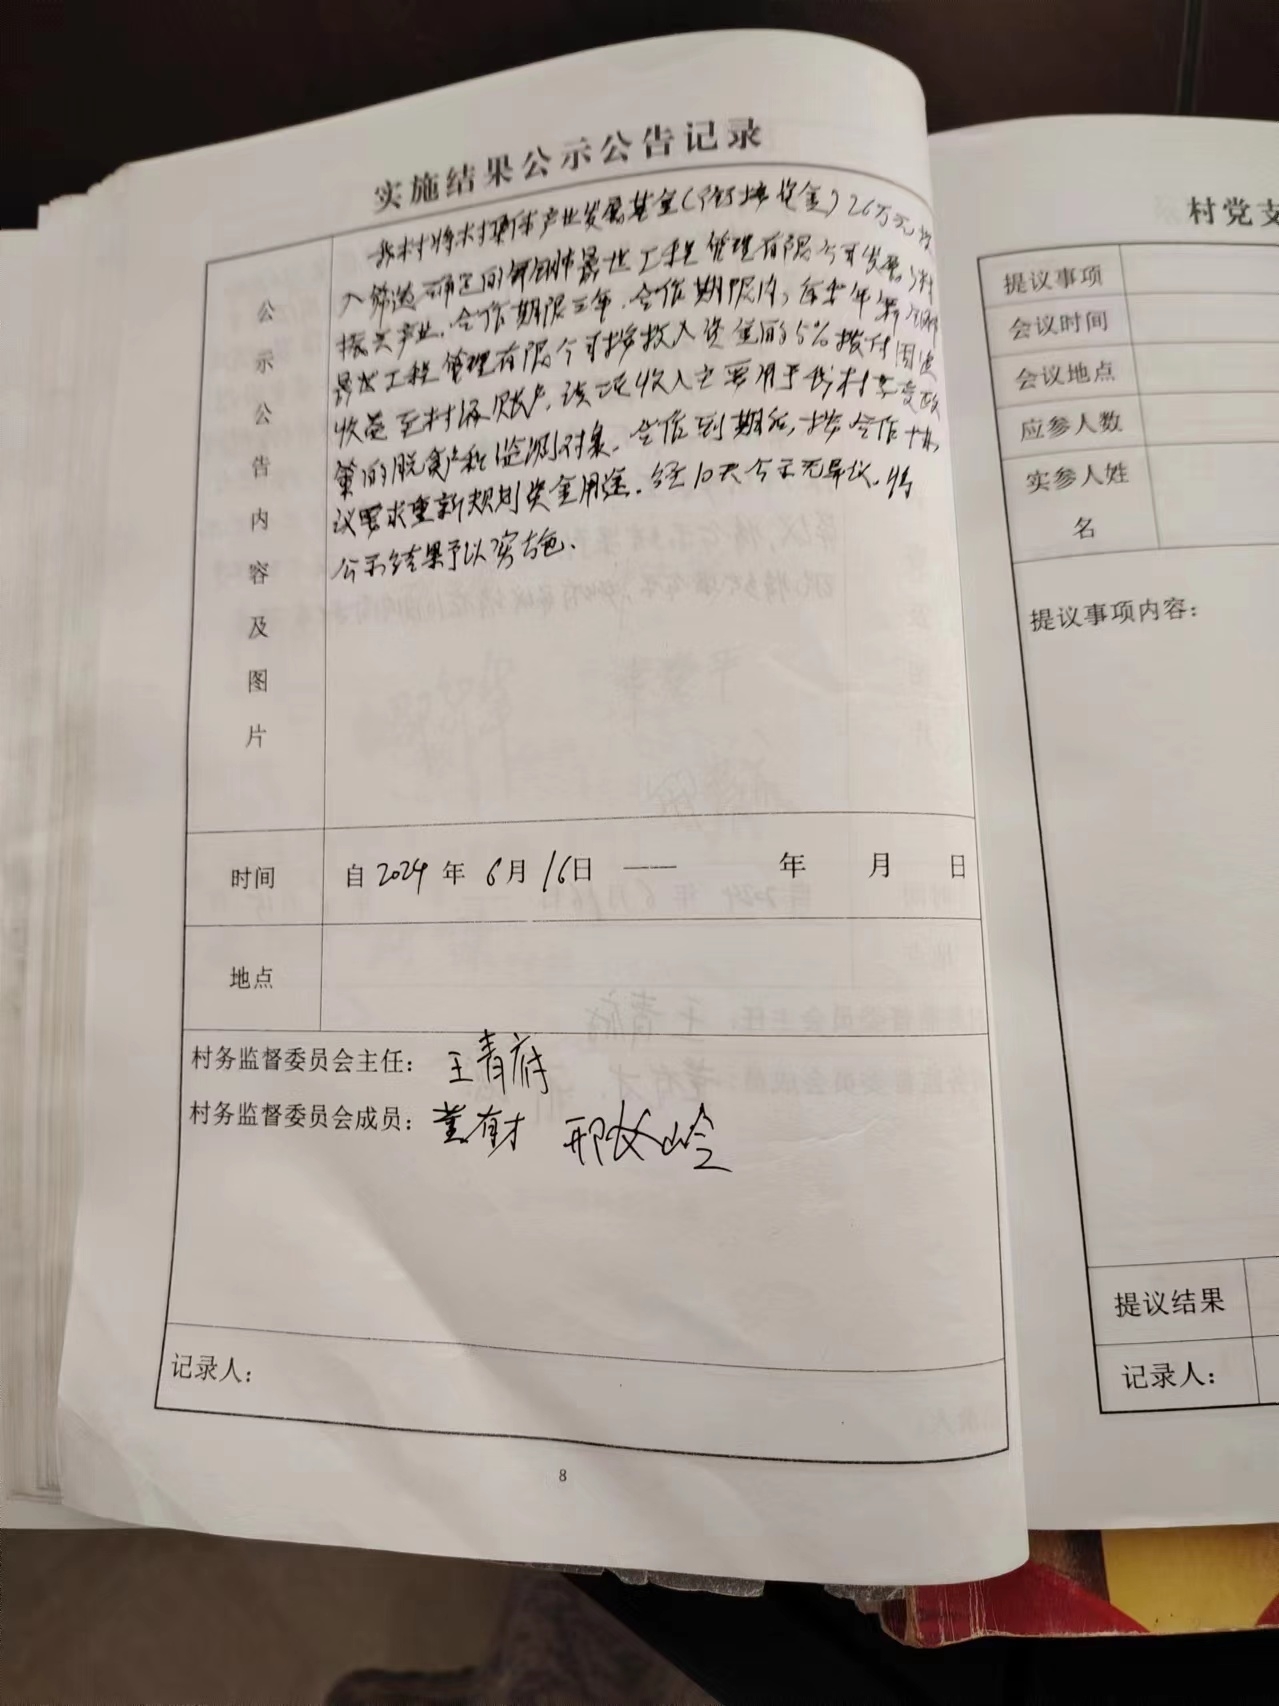 实施结果公示公告记录
公示公告内容及图片
我村将村集体产业发展基金(衔接资金)26万元投
入 的 工程管理有限公司发展乡村
振兴产业,合作期限三年,合作期限内,每年
工程管理有限公司按投入资金的5%拨付固定
收益至村 账户,该项收入主要用于我村享受政
策的脱贫户和监测对象,合作到期后,按合作协
议要求重新规划资金用途,经10天公示无异议,将
公示结果予以实施.
时间 自2024年6月16日 —— 年 月 日
地点
村务监督委员会主任: 王青府
村务监督委员会成员: 董有才 邢文岭
记录人:
8
村党支
提议事项
会议时间
会议地点
应参人数
实参人姓
名
提议事项内容:
提议结果
记录人: